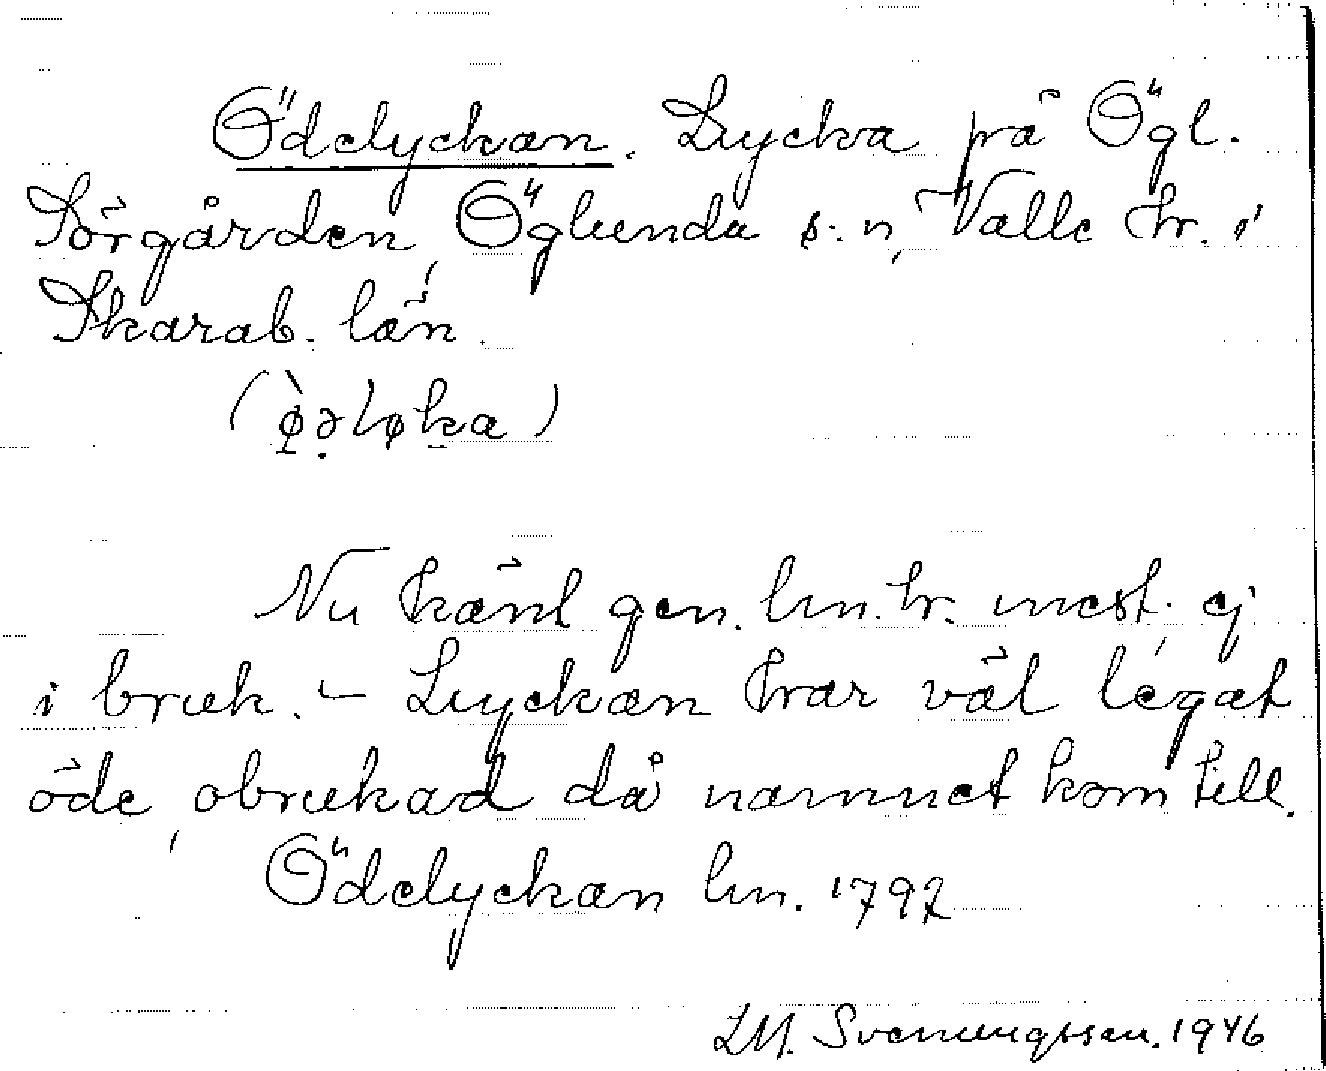 Ödelyckan. Lycka på Ögl.
Sörgården, Öglunda s:n, Valle hr. i
Skarab. län.
Nu känt gen. lm. hr. mest. ej
i bruk. – Lyckan har väl legat
öde, obrukad då namnet kom till.
Ödelyckan lm. 1797
LM. Svenungsson. 1946